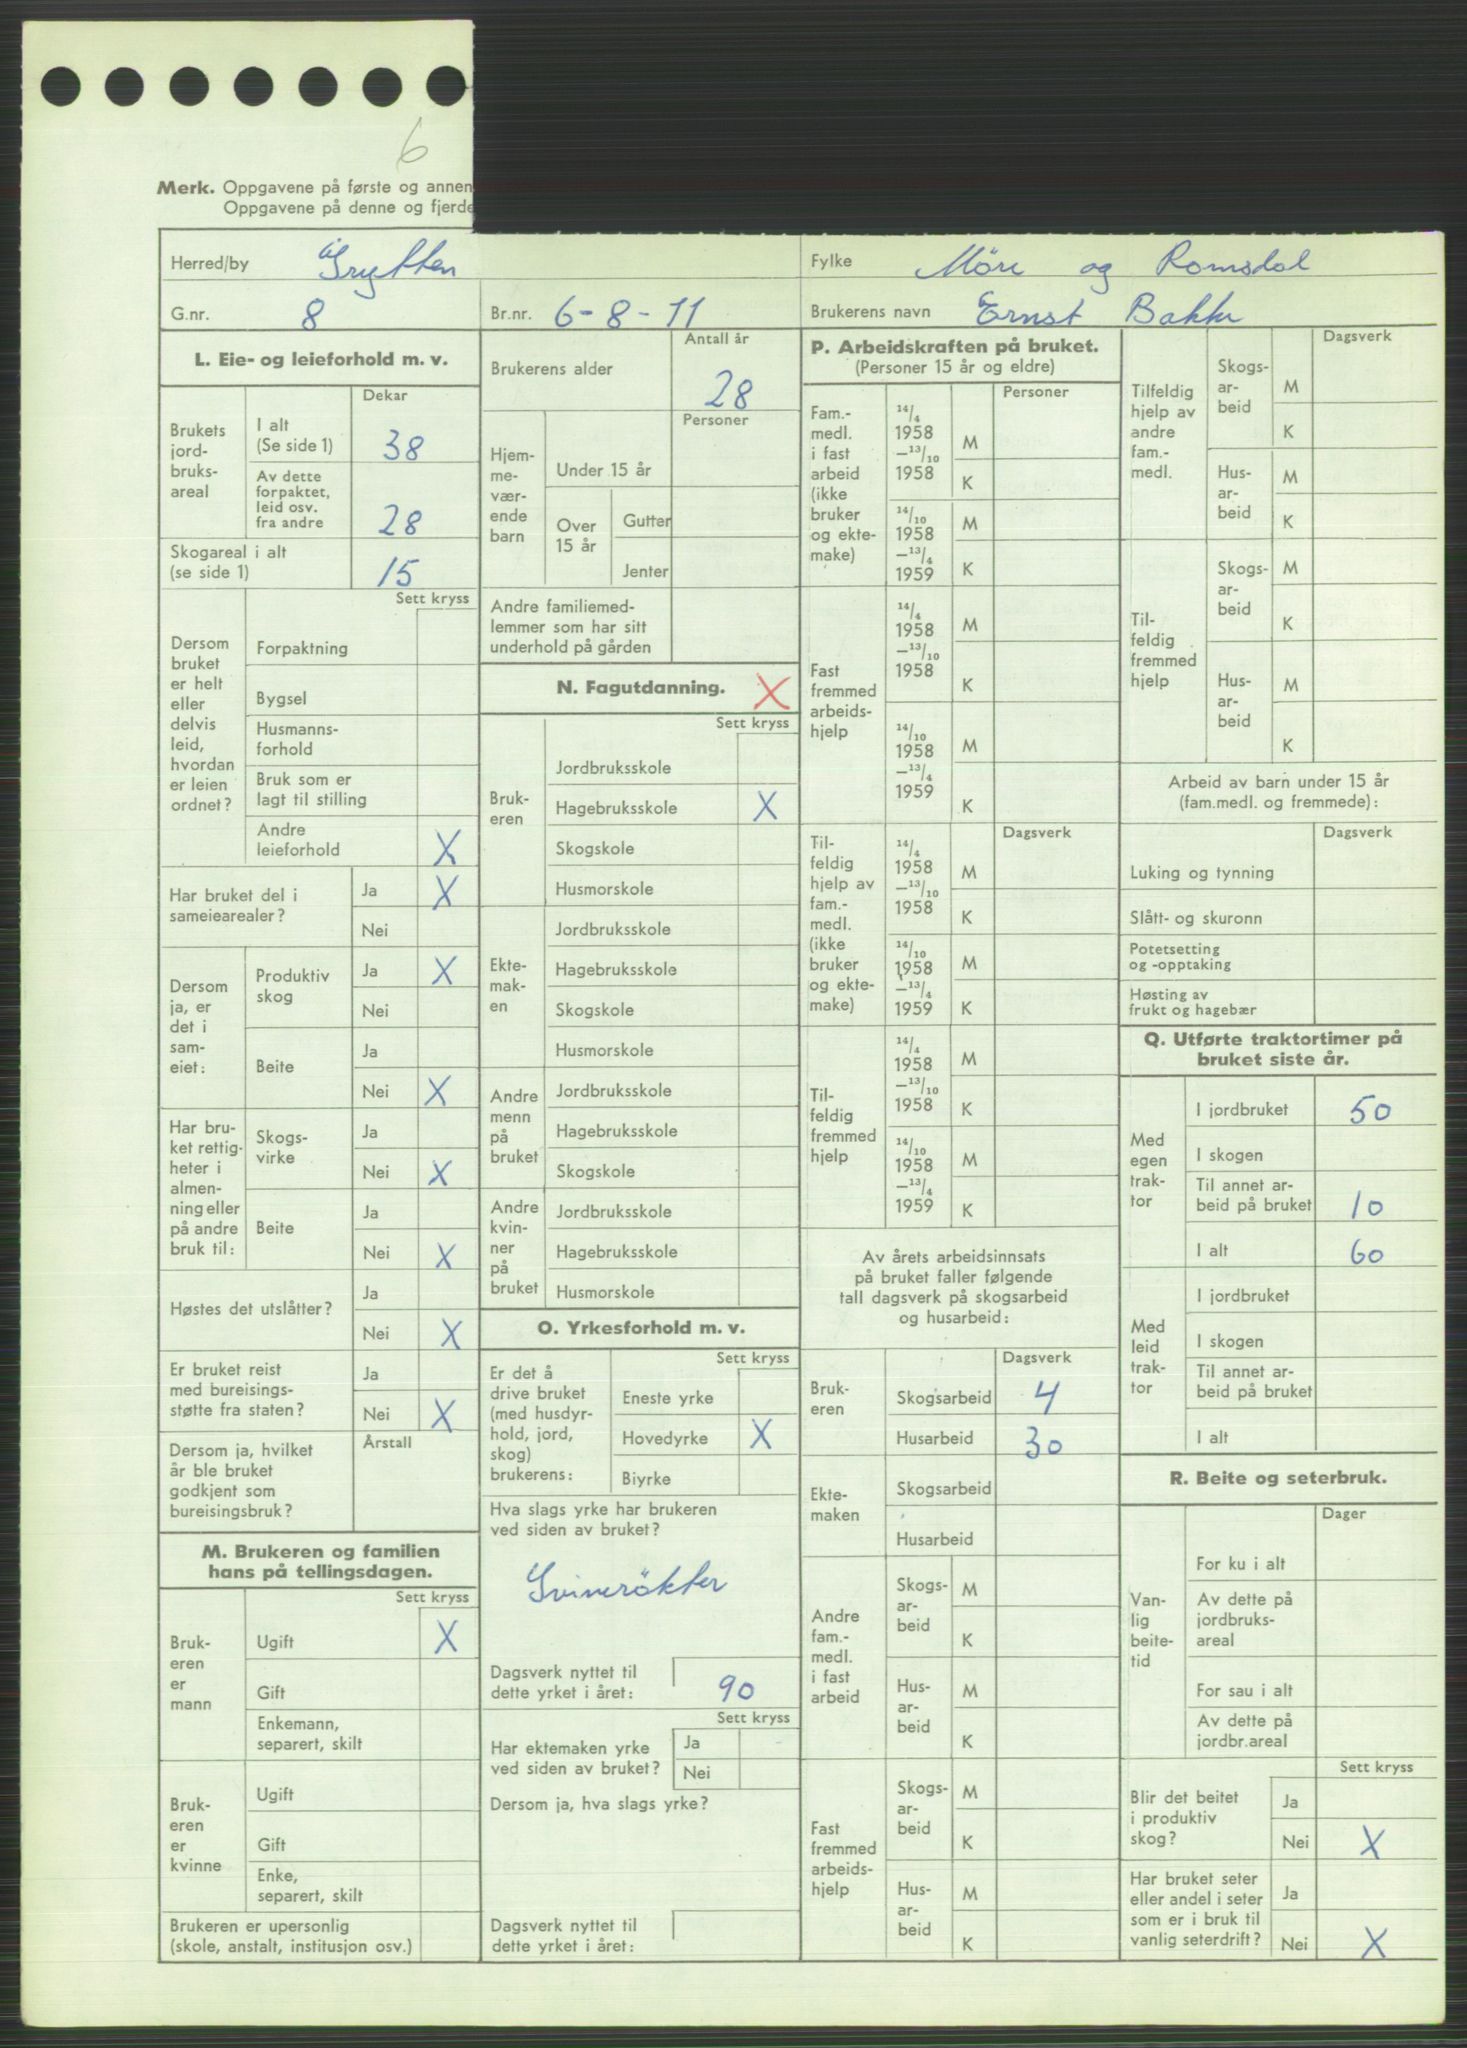 6
Merk. Oppgavene på første og annen
Oppgavene på denne og fjerde
Herred/by Grytten
Fylke Möre og Romsdal
G.nr. 8
Br.nr. 6-8-11
Brukerens navn Ernst Bakke
L. Eie- og leieforhold m. v.
Dekar
Brukets jord- bruks- areal
I alt (Se side 1) 38
Av dette forpaktet, leid osv. fra andre 28
Skogareal i alt (se side 1) 15
Sett kryss
Dersom bruket er helt eller delvis leid, hvordan er leien ordnet?
Forpaktning
Bygsel
Husmanns- forhold
Bruk som er lagt til stilling
Andre leieforhold X
Har bruket del i sameiearealer?
Ja X
Nei
Dersom ja, er det i sam- eiet:
Produktiv skog
Ja X
Nei
Beite
Ja
Nei X
Har bru- ket rettig- heter i almen- ning eller på andre bruk til:
Skogs- virke
Ja
Nei X
Beite
Ja
Nei X
Høstes det utslåtter?
Ja
Nei X
Er bruket reist med bureisings- støtte fra staten?
Ja
Nei X
Dersom ja, hvilket år ble bruket godkjent som bureisingsbruk?
Årstall
M. Brukeren og familien hans på tellingsdagen.
Sett kryss
Bruk- eren er mann
Ugift X
Gift
Enkemann, separert, skilt
Bruk- eren er kvinne
Ugift
Gift
Enke, separert, skilt
Brukeren er upersonlig (skole, anstalt, institusjon osv.)
Antall år
Brukerens alder 28
Personer
Hjem- me- vær- ende barn
Under 15 år
Over 15 år
Gutter
Jenter
Andre familiemed- lemmer som har sitt underhold på gården
N. Fagutdanning. X
Sett kryss
Bruk- eren
Jordbruksskole
Hagebruksskole X
Skogskole
Husmorskole
Ekte- mak- en
Jordbruksskole
Hagebruksskole
Skogskole
Husmorskole
Andre menn på bruket
Jordbruksskole
Hagebruksskole
Skogskole
Andre kvin- ner på bruket
Jordbruksskole
Hagebruksskole
Husmorskole
O. Yrkesforhold m. v.
Sett kryss
Er det å drive bruket (med husdyr- hold, jord, skog) brukerens:
Eneste yrke
Hovedyrke X
Biyrke
Hva slags yrke har brukeren ved siden av bruket?
Svinerökter
Dagsverk nyttet til dette yrket i året: 90
Sett kryss
Har ektemaken yrke ved siden av bruket?
Ja
Nei
Dersom ja, hva slags yrke?
Dagsverk nyttet til dette yrket i året:
P. Arbeidskraften på bruket.
(Personer 15 år og eldre)
Personer
Fam.- medl. i fast arbeid (ikke bruker og ekte- make)
14/4 1958 —13/10 1958
M
K
14/10 1958 —13/4 1959
M
K
Fast fremmed arbeids- hjelp
14/4 1958 —13/10 1958
M
K
14/10 1958 —13/4 1959
M
K
Dagsverk
Til- feldig hjelp av fam.- medl. (ikke bruker og ekte- make)
14/4 1958 —13/10 1958
M
K
14/10 1958 —13/4 1959
M
K
Til- feldig fremmed hjelp
14/4 1958 —13/10 1958
M
K
14/10 1958 —13/4 1959
M
K
Av årets arbeidsinnsats på bruket faller følgende tall dagsverk på skogsarbeid og husarbeid:
Dagsverk
Bruk- eren
Skogsarbeid 4
Husarbeid 30
Ekte- maken
Skogsarbeid
Husarbeid
Andre fam.- medl. i fast arbeid
Skogs- ar- beid
M
K
Hus- ar- beid
M
K
Fast fremmed arbeids- hjelp
Skogs- ar- beid
M
K
Hus- ar- beid
M
K
Dagsverk
Tilfeldig hjelp av andre fam.- medl.
Skogs- ar- beid
M
K
Hus- ar- beid
M
K
Til- feldig fremmed hjelp
Skogs- ar- beid
M
K
Hus- ar- beid
M
K
Arbeid av barn under 15 år (fam.medl. og fremmede):
Dagsverk
Luking og tynning
Slått- og skuronn
Potetsetting og -opptaking
Høsting av frukt og hagebær
Q. Utførte traktortimer på bruket siste år.
Med egen trak- tor
I jordbruket 50
I skogen
Til annet ar- beid på bruket 10
I alt 60
Med leid trak- tor
I jordbruket
I skogen
Til annet ar- beid på bruket
I alt
R. Beite og seterbruk.
Dager
Van- lig beite- tid
For ku i alt
Av dette på jordbruks- areal
For sau i alt
Av dette på jordbr.areal
Sett kryss
Blir det beitet i produktiv skog?
Ja
Nei X
Har bruket seter eller andel i seter som er i bruk til vanlig seterdrift?
Ja
Nei X